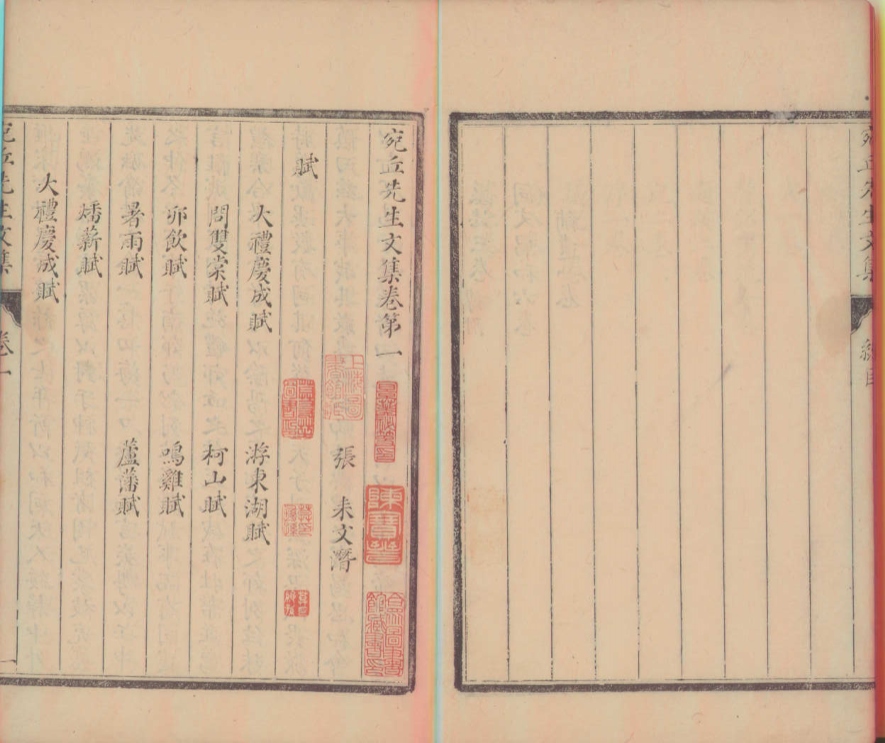 宛丘先生文集
總目
宛丘先生文集卷第一
張 耒文潛
賦
大禮慶成賦 游東湖賦
問雙棠賦 柯山賦
卯飲賦 鳴雞賦
暑雨賦 蘆藩賦
燔薪賦
大禮慶成賦
宛丘先生文集 卷一 一